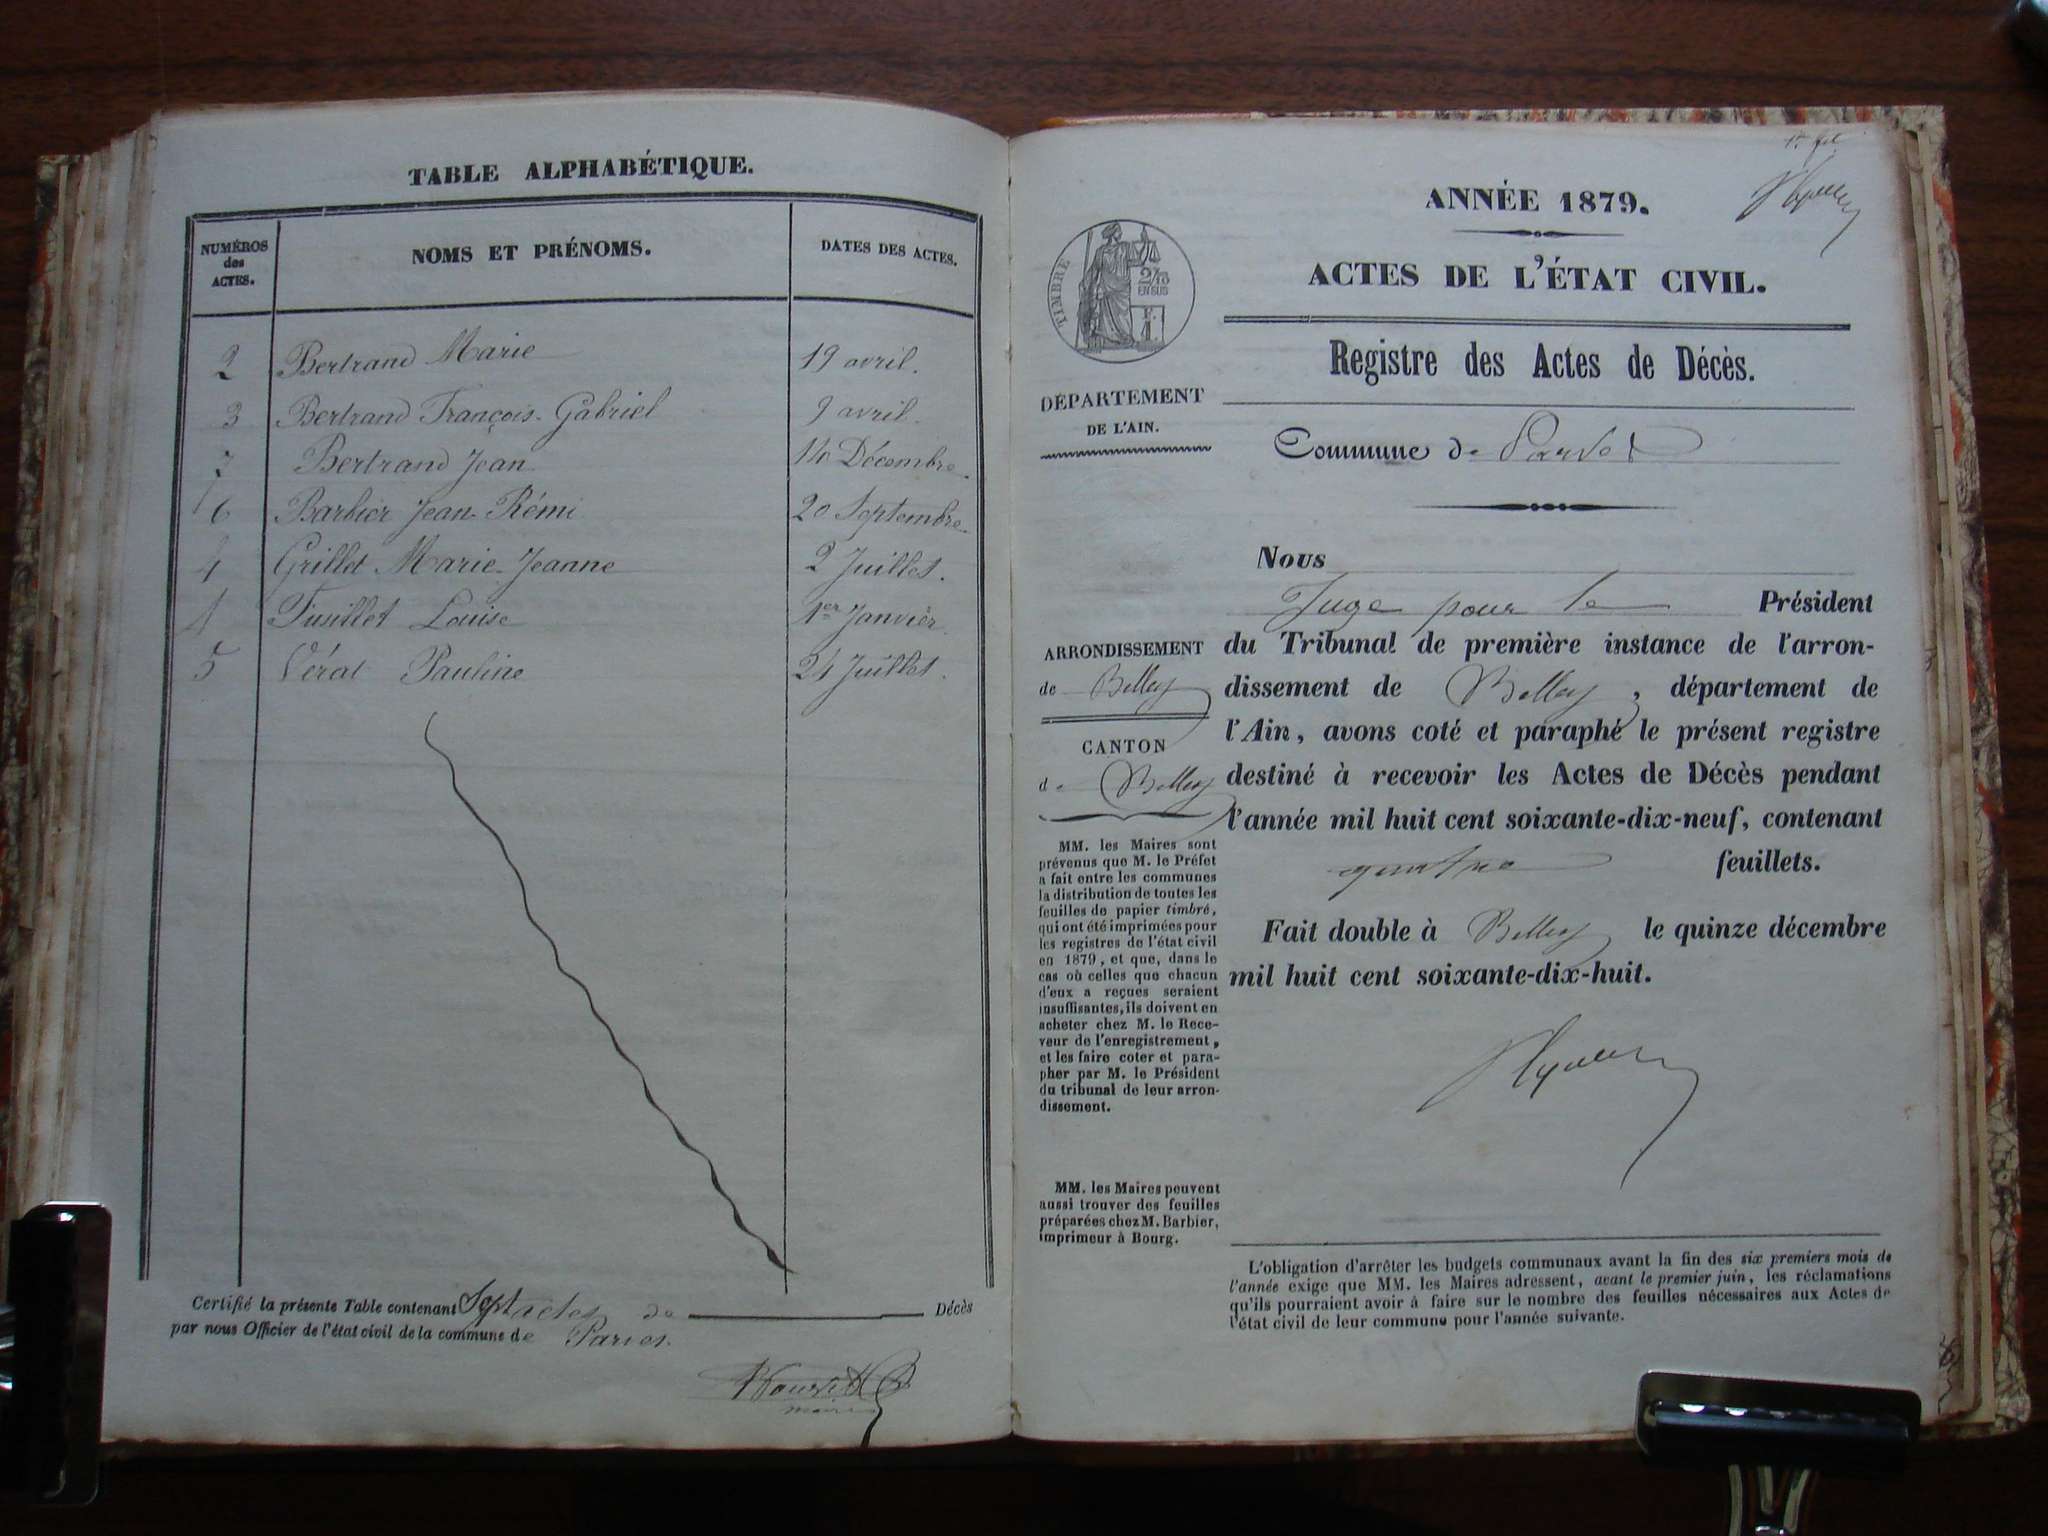 TABLE ALPHABÉTIQUE.
NUMÉROS des ACTES.
NOMS ET PRÉNOMS.
DATES DES ACTES.
2 Bertrand Marie 19 avril.
3 Bertrand François-Gabriel 9 avril.
7 Bertrand Jean 14 Décembre.
6 Barbier Jean Rémi 20 Septembre.
4 Grillet Marie-Jeanne 2 Juillet.
1 Fusillet Louise 1er Janvier.
5 Vérat Pauline 24 Juillet.
Certifié la présente Table contenant Sept actes de Décès
par nous Officier de l'état civil de la commune de Parves.
maire
ANNÉE 1879.
ACTES DE L'ÉTAT CIVIL.
Registre des Actes de Décès.
TIMBRE
2/10
EN SUS
DÉPARTEMENT
DE L'AIN.
Commune de
Nous
Juge pour le Président
du Tribunal de première instance de l'arron-
dissement de Belley, département de
l'Ain, avons coté et paraphé le présent registre
destiné à recevoir les Actes de Décès pendant
l'année mil huit cent soixante-dix-neuf, contenant
quatre feuillets.
Fait double à Belley le quinze décembre
mil huit cent soixante-dix-huit.
ARRONDISSEMENT
de Belley
CANTON
de Belley
MM. les Maires sont
prévenus que M. le Préfet
a fait entre les communes
la distribution de toutes les
feuilles de papier timbré,
qui ont été imprimées pour
les registres de l'état civil
en 1879, et que, dans le
cas où celles que chacun
d'eux a reçues seraient
insuffisantes, ils doivent en
acheter chez M. le Rece-
veur de l'enregistrement,
et les faire coter et para-
pher par M. le Président
du tribunal de leur arron-
dissement.
MM. les Maires peuvent
aussi trouver des feuilles
préparées chez M. Barbier,
imprimeur à Bourg.
L'obligation d'arrêter les budgets communaux avant la fin des six premiers mois de
l'année exige que MM. les Maires adressent, avant le premier juin, les réclamations
qu'ils pourraient avoir à faire sur le nombre des feuilles nécessaires aux Actes de
l'état civil de leur commune pour l'année suivante.